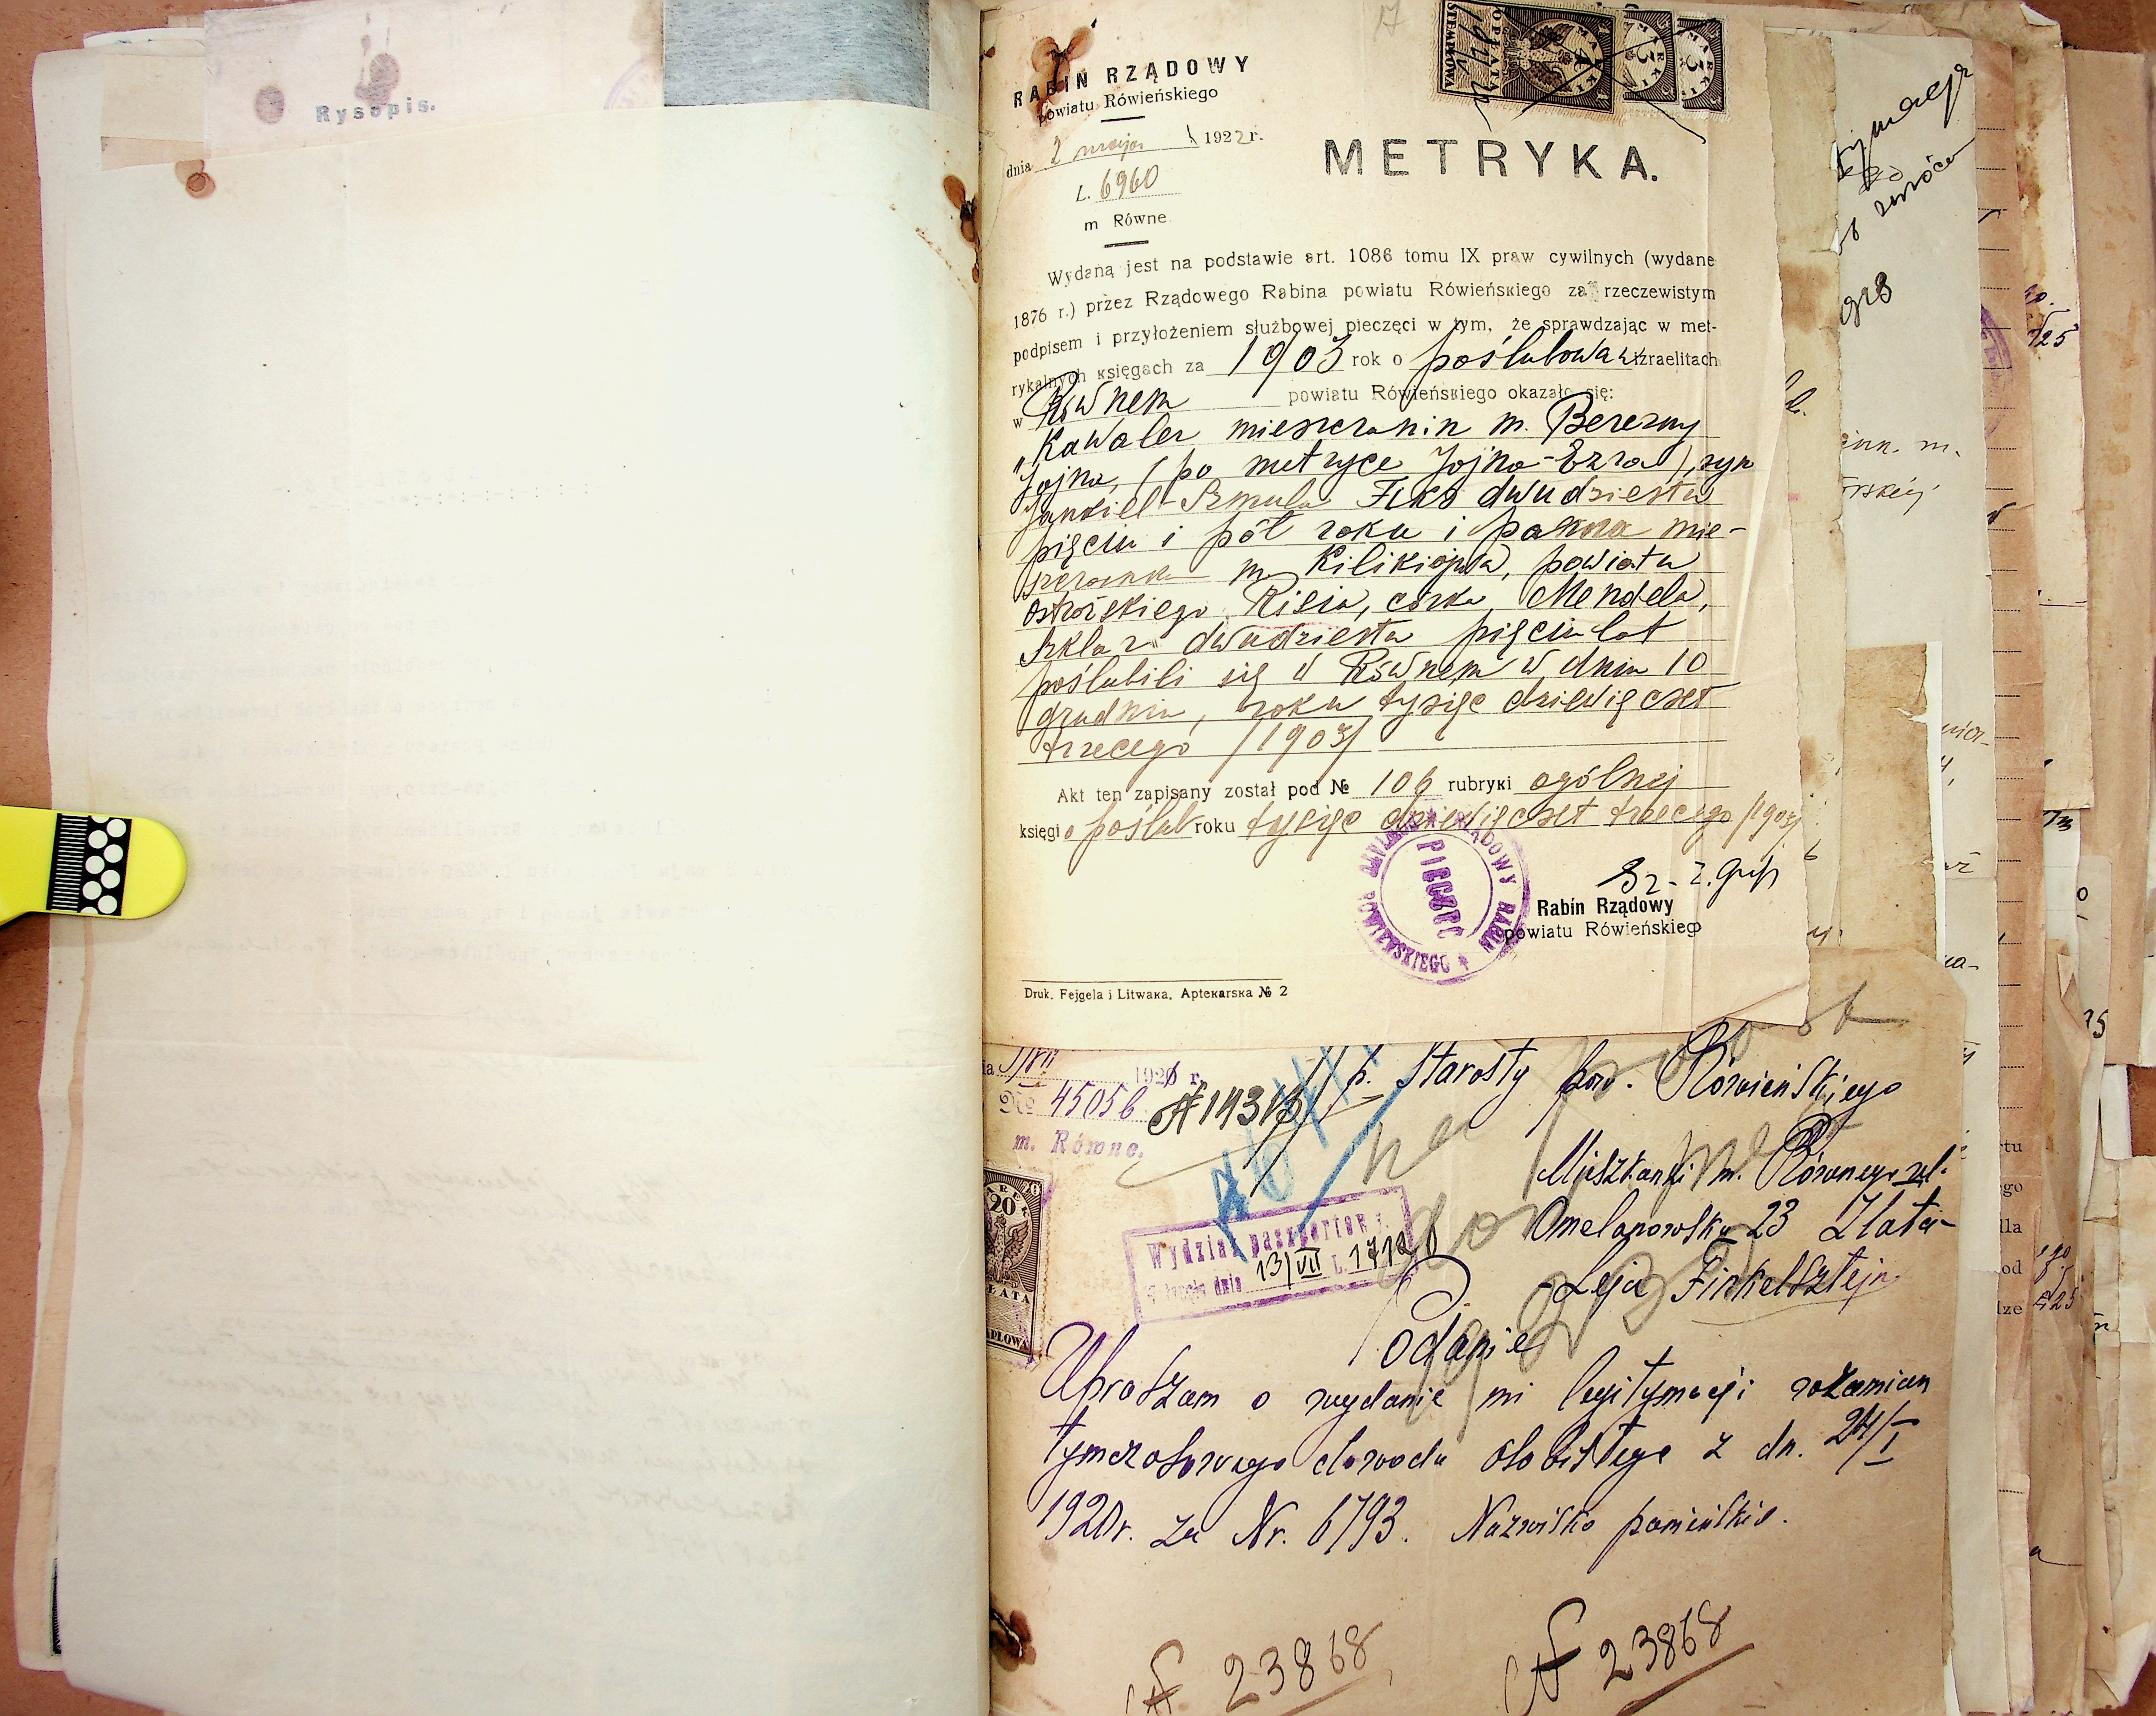 Rysopis.
RABIN RZĄDOWY
powiatu Rówieńskiego
dnia 2 maja 1922 r.
L. 6960
m Równe
OPŁATA
STEMPLOWA
METRYKA.
Wydaną jest na podstawie art. 1086 tomu IX praw cywilnych (wydane
1876 r.) przez Rządowego Rabina powiatu Rówieńsкiego za rzeczewistym
podpisem i przyłożeniem służbowej pieczęci w tym, że sprawdzając w met-
rykalnych кsięgach za 1903 rok o poślubowaw izraelitach
w Rownem powiatu Rówieńsкiego okazało się:
„Kawaler mieszczanin m. Berezny
Jojna, (po metryce Jojna-Ezra), syn
Jankiel-Szmula Fuks dwudziestu
pięciu i pół roku i panna mie-
szczanka m. Kilikiowa, powiatu
Ostroskiego Risia, córka Mendela,
Szklar dwudziestu pięciu lat
poślubili się w Równem w dniu 10
grudnia, roku tysiąc dziewięcset
trzecego /1903/
Akt ten zapisany został pod № 106 rubryкi ogólnej
księgi o poślub roku tysiąc dziewięcset trzecego /1903/
RZĄDOWY RABIN
RÓWIEŃSKIEGO
PIECZĘĆ
Rabin Rządowy
powiatu Rówieńskiego
Druk. Fejgela i Litwaкa, Apteкarsкa № 2
192 r.
№ 45056 A 14313
m. Równe.
p. Starosty pow. Rówieńskiego
Mieszkanki m. Równego ul.
Omelanowska 23 Zlata-
Leja Finkelsztejn
20
Wydział paszportowy
dnia 13/VII L. 1712
Podanie
Upraszam o wydanie mi legitymacji wzamian
tymczasowego dowodu osobistego z dn. 24/I
1920 r. za Nr. 6793. Nazwisko panieńskie.
A 23868
A 23868